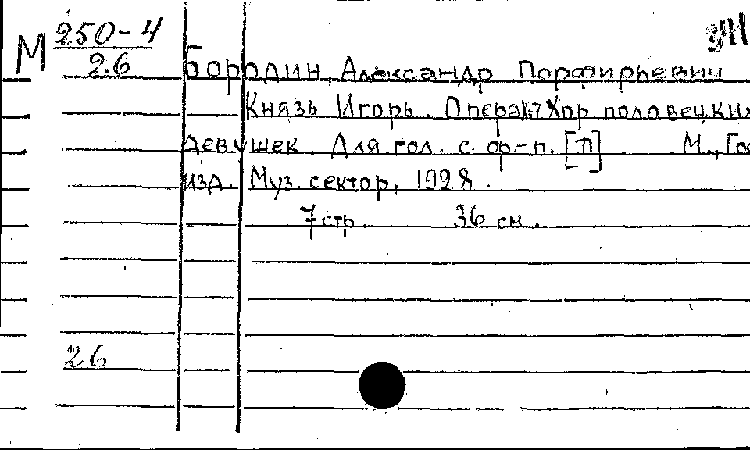 М 250-4
26
Бородин, Александр Порфирьевич
Князь Игорь. Опера. Хор половецких
девушек. Для гол. с. ф-п. [П] М., Гос
изд. Муз. сектор, 1928.
7 стр. 36 см.
26